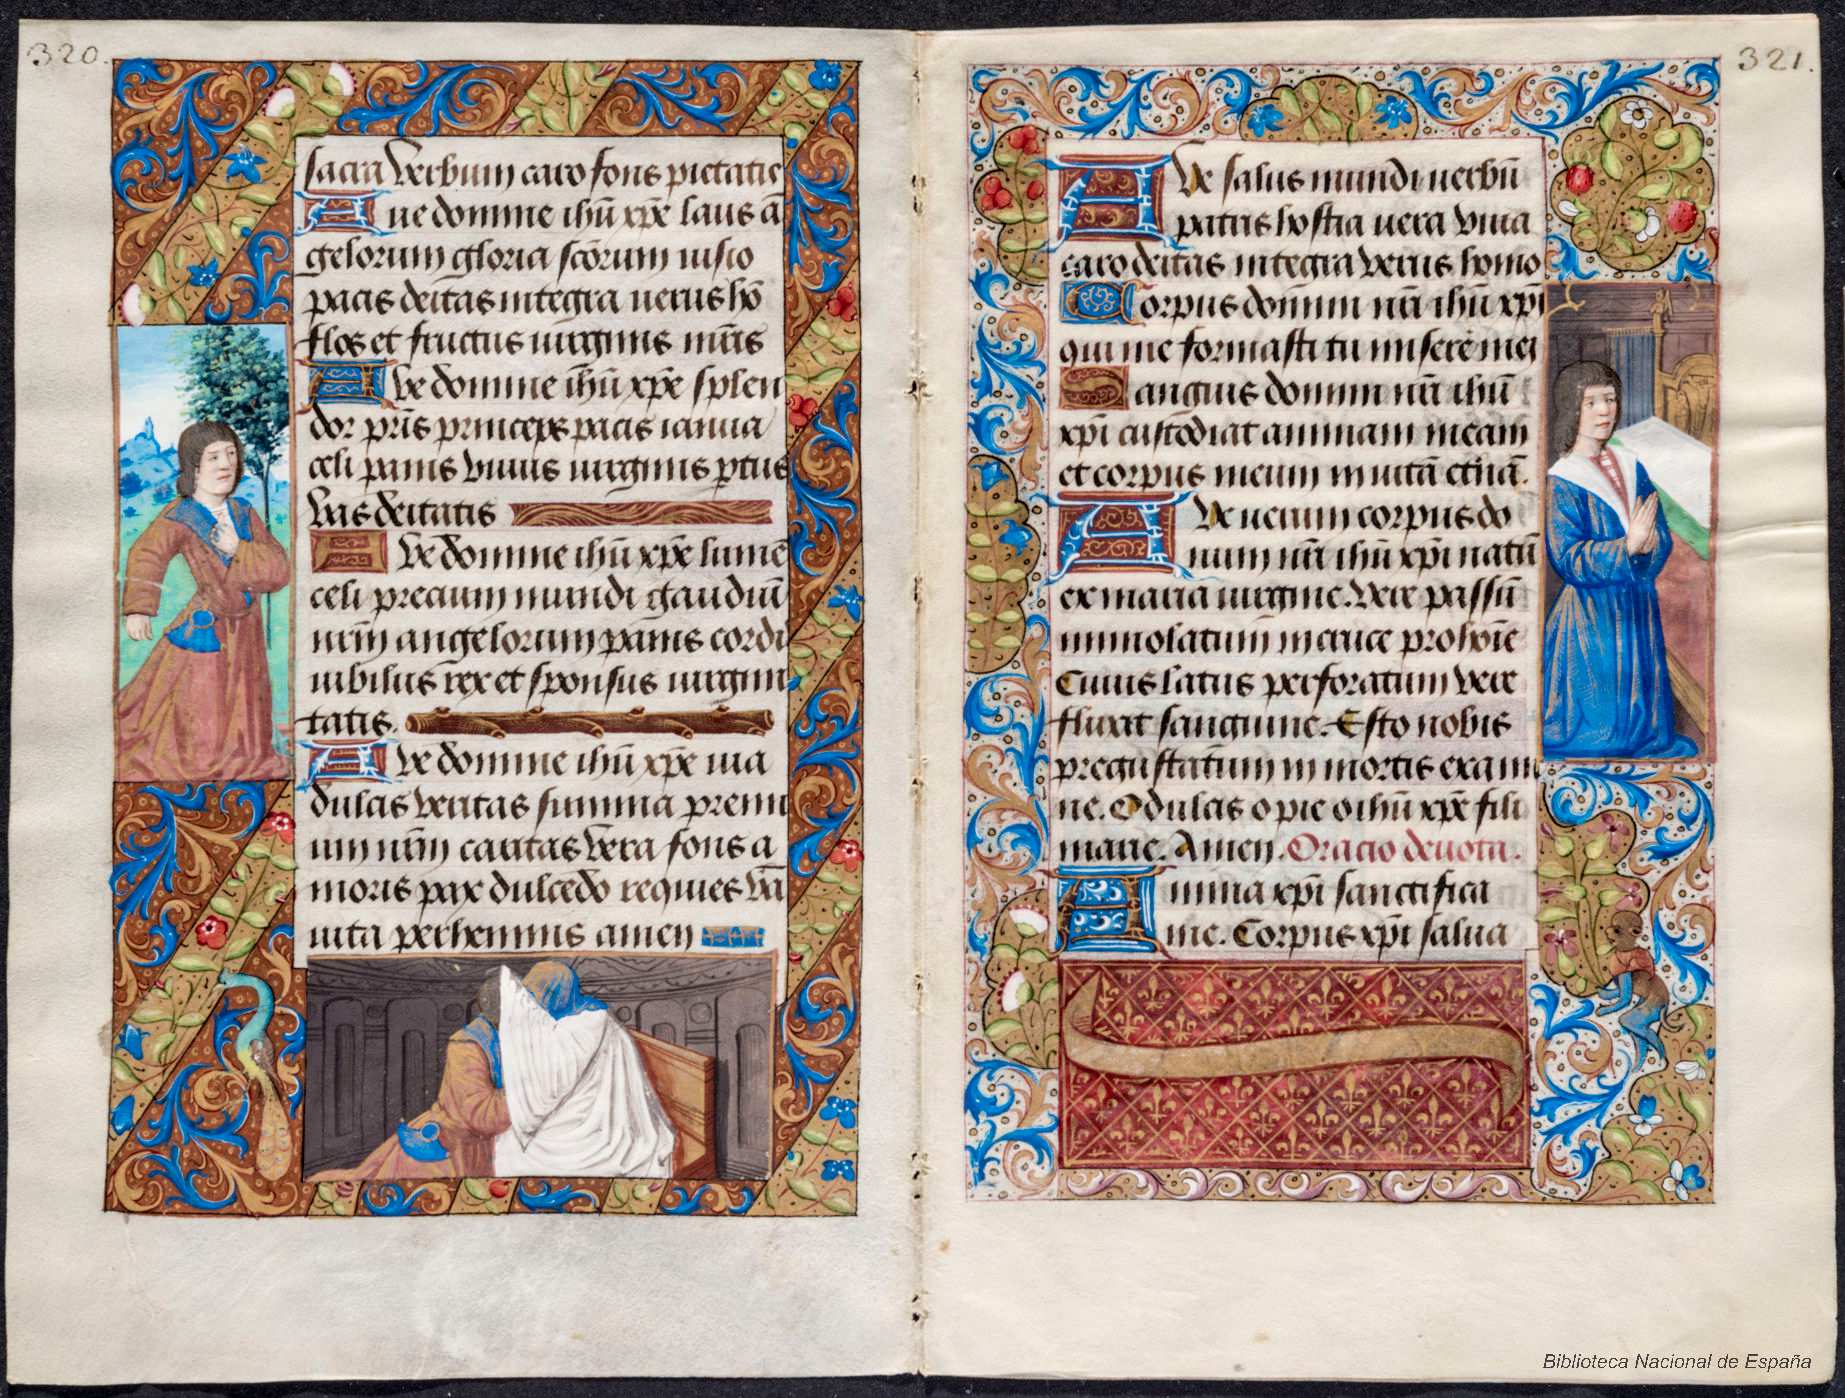 320.
sacra Verbum caro fons pietatis
Aue domine ihū xp̄e laus ā
gelorum gloria sc̄orum uisio
pacis deitas integra uerus hō
flos et fructus uirginis mr̄is
Ave domine ih̄u xp̄e splen
dor pr̄is princeps pacis ianua
celi panis viuus uirginis ptus
Vas deitatis
Ave domine ihū xp̄e lumē
celi precium mundi gaudiū
nr̄m angelorum panis cordi
iubilus rex et sponsus uirgini
tatis.
Ave domine ihū xp̄e uia
dulcis veritas summa premi
um nr̄m caritas vera fons a
moris pax dulcedo requies vā
uita perhennis amen
321.
Ave salus mundi uerbū
patris hostia uera viua
caro deitas integra verus homo
Corpus domini nr̄i ihū xp̄i
qui me formasti tu miserē mei
Sanguis domini nr̄i ihū
xp̄i custodiat animam meam
et corpus meum in uitā et̄nā.
Ave uerum corpus do
mini nr̄i ihū xp̄i natū
ex maria uirgine. Vere passū
immolatum in cruce pro hoīe
Cuius latus perforatum vere
fluxit sanguine. Esto nobis
pregustatum in mortis exami
ne. O dulcis o pie o ihū xp̄e fili
marie. Amen. Oracio deuota.
Anima xp̄i sanctifica
me. Corpus xp̄i salua
Biblioteca Nacional de España